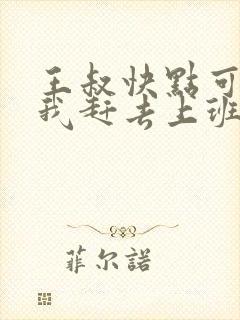 王叔快點可
我赶去上班
菲尔諾